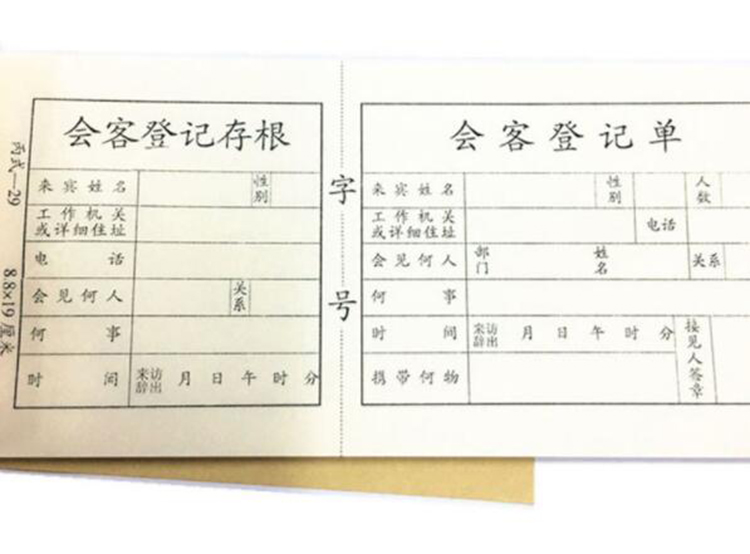 丙式—29 8.8×19厘米
会客登记存根
来宾姓名 性别
工作机关
或详细住址
电话
会见何人 关系
何事
时间 来访 辞出 月 日 午 时 分
字 号
会客登记单
来宾姓名 性别 人数
工作机关
或详细住址 电话
会见何人 部门 姓名 关系
何事
时间 来访 辞出 月 日 午 时 分 接见人签章
携带何物